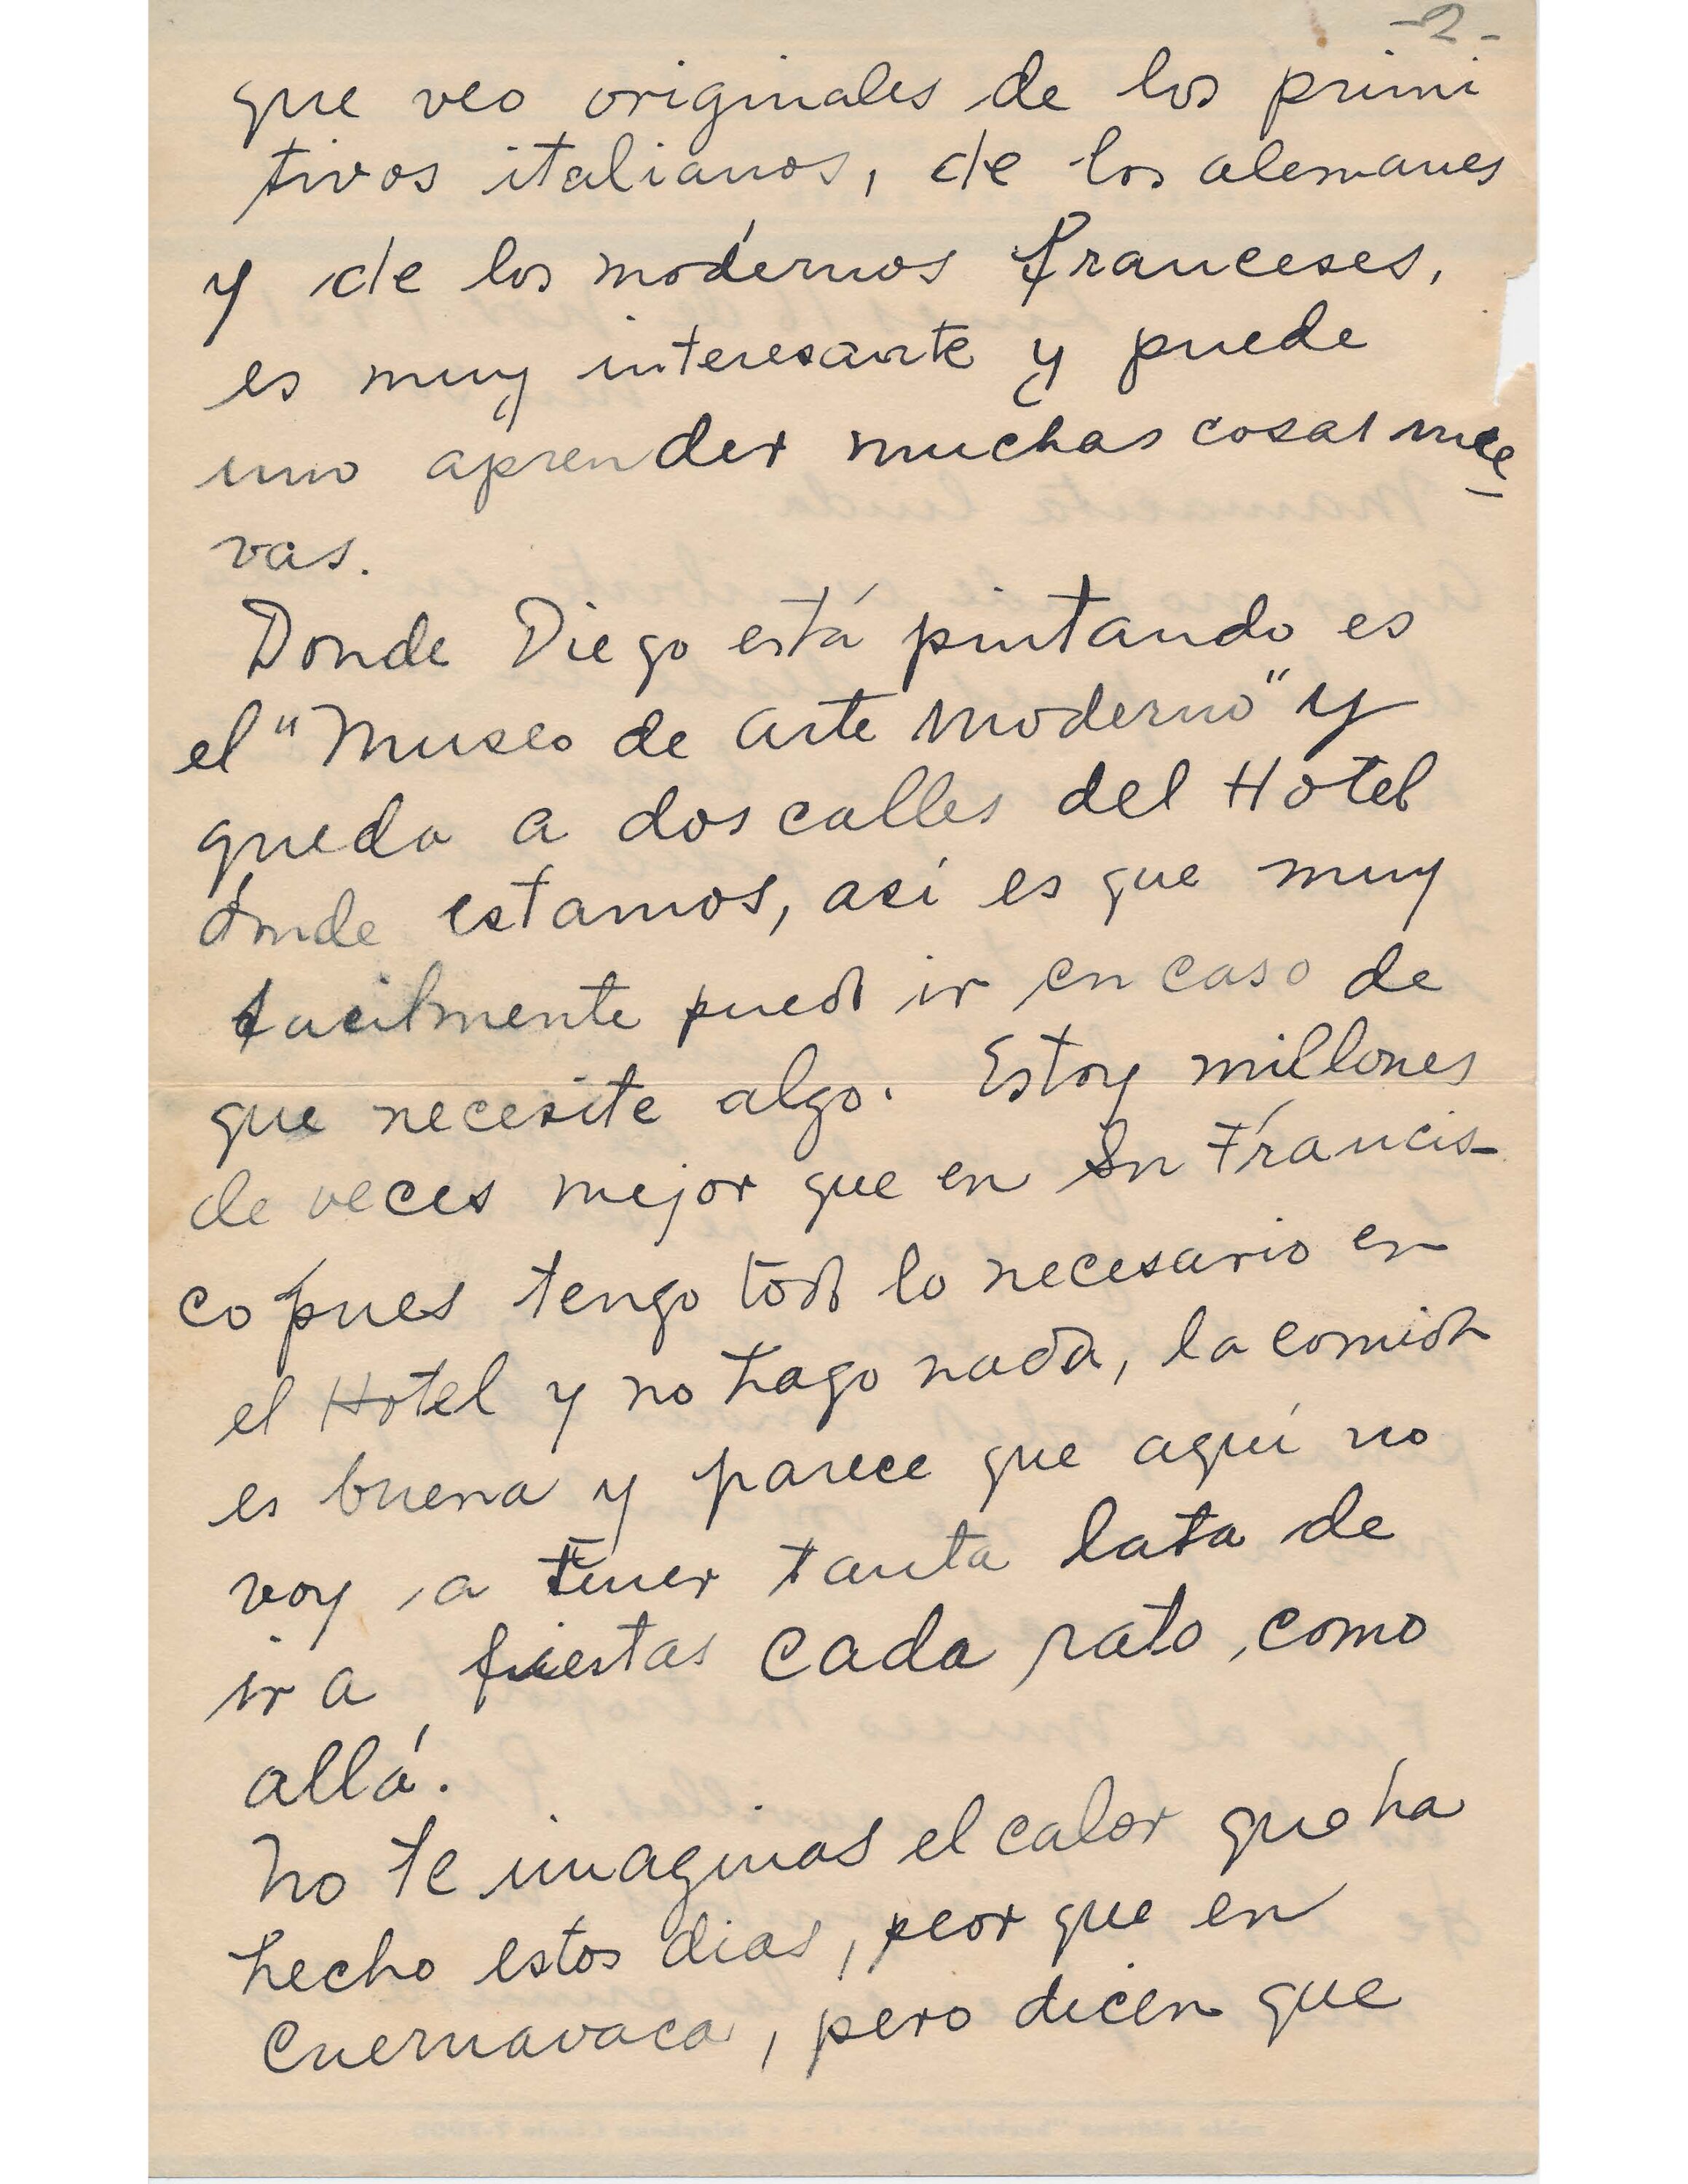 -2-
que veo originales de los primi
tivos italianos, de los alemanes
y de los modernos franceses,
es muy interesante y puede
uno aprender muchas cosas nue
vas.
Donde Diego está pintando es
el "Museo de Arte Moderno" y
queda a dos calles del Hotel
donde estamos, asi es que muy
facilmente puedo ir en caso de
que necesite algo. Estoy millones
de veces mejor que en Sn Francis-
co pues tengo todo lo necesario en
el Hotel y no hago nada, la comida
es buena y parece que aquí no
voy a tener tanta lata de
ir a fiestas cada rato, como
allá.
No te imaginas el calor que ha
hecho estos dias, peor que en
Cuernavaca, pero dicen que